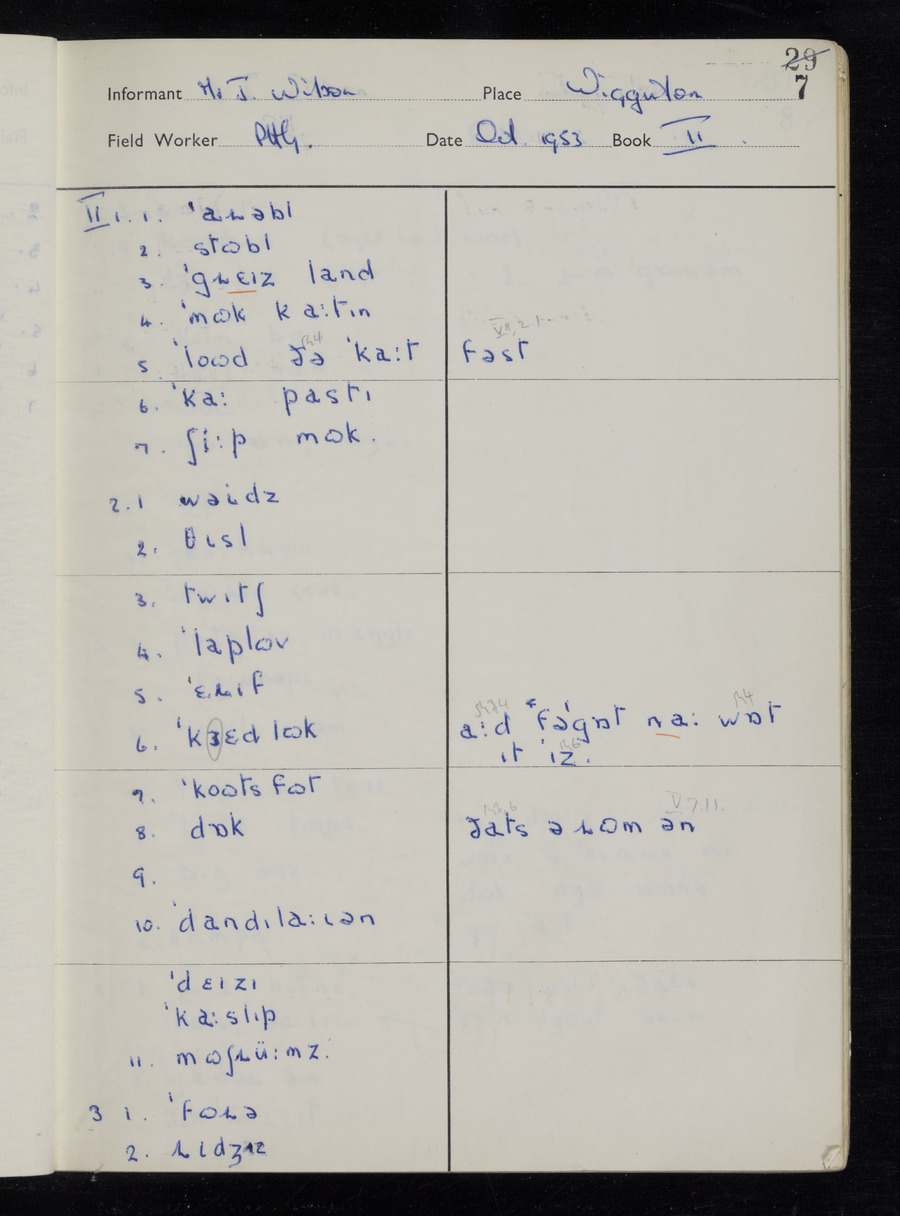 29
7
Informant Mr J. Wilson Place Wigginton
Field Worker PHG. Date Oct 1953 Book II.
II 1. 1. ˈaɹəbl
2. stɷbl
3. ˈgɹɛiz land
4. ˈmɷk ka:tɪn
5. ˈloɷd ðə ˈka:t fəst
6. ˈka: pastɪ
7. ʃi:p mɷk.
2. 1 wəidz
2. θɪsl
3. twɪtʃ
4. ˈlaplɷv
5. ˈɛɹɪf
6. ˈkɛdlɷk a:d fəˈgɒt na: wɒt
ɪt ˈiz.
7. ˈkoɷtsfɷt
8. dɒk ðats ə ɹɷm ən
9.
10. ˈdandɪla:ɪən
ˈdɛizɪ
ˈka:slɪp
11. mɷʃɹü:mz.
3 1. ˈfɷɹə
2. ɹɪdʒɪz